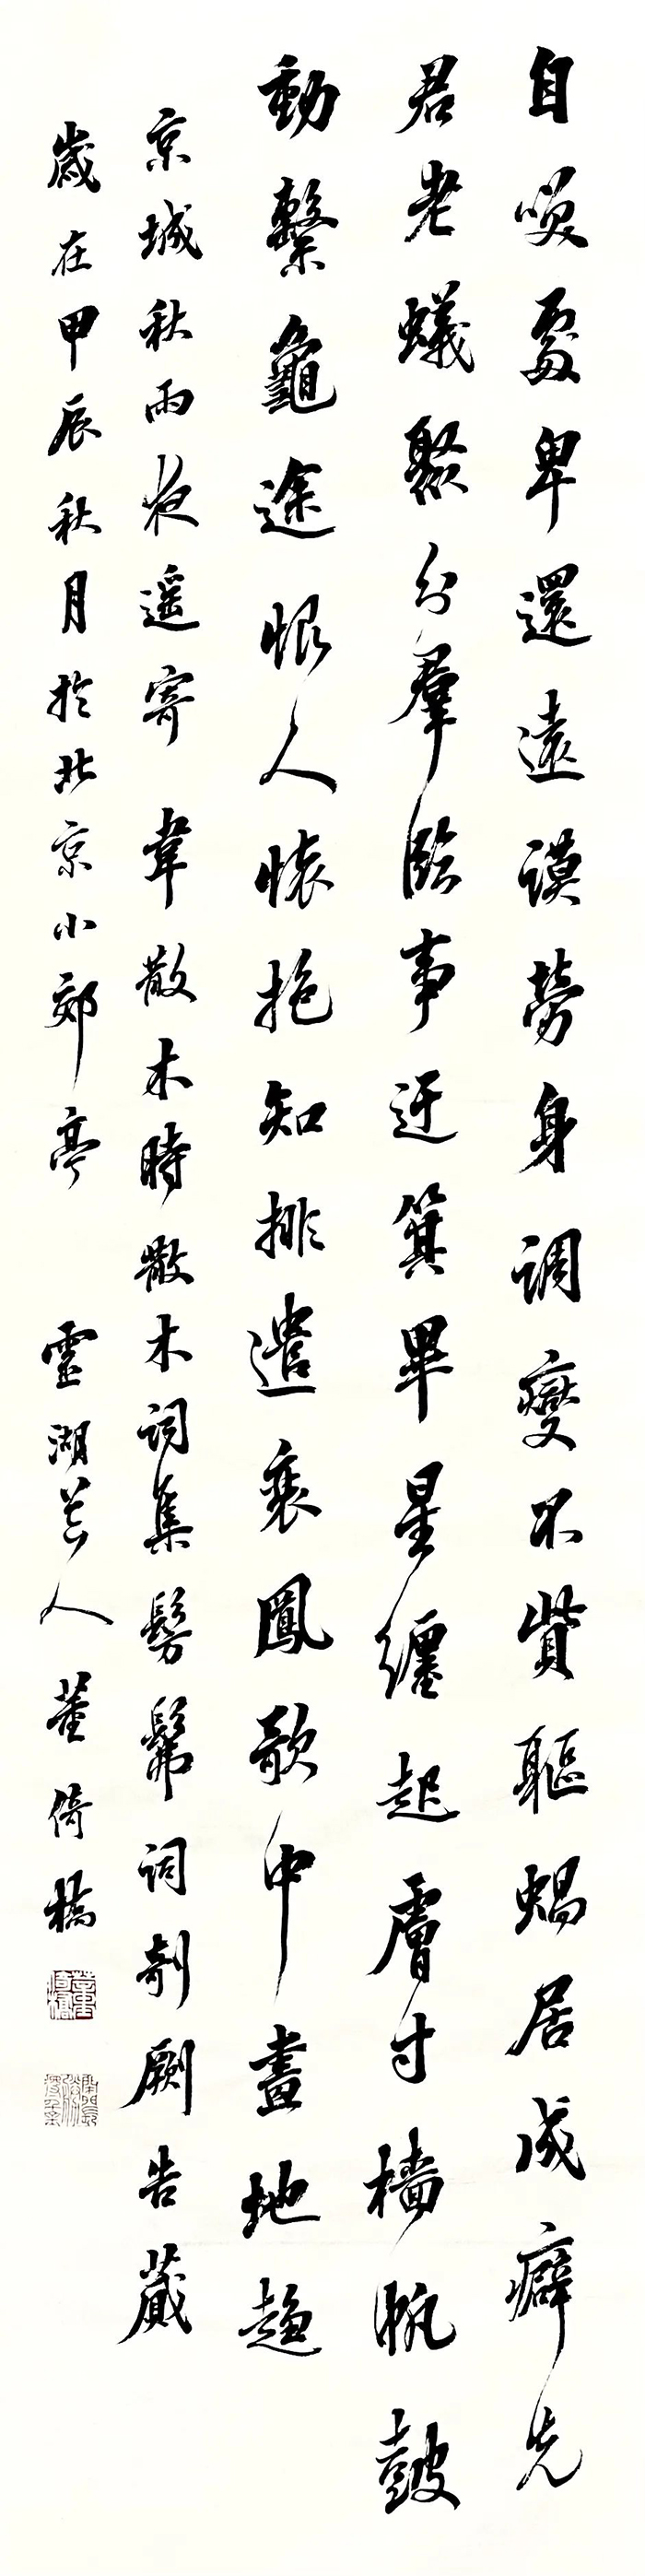 自嘆處卑還遠謨勞身調燮不貲軀蝸居成癖先
君老蟻聚分羣臨事迂箕畢星纏起膚寸檣帆鼓
動繫龜途恨人懷抱知排遣衰鳳歌中畫地趨
京城秋雨夜遥寄 韋散木時散木詞集髣髴詞剞劂告蕆
歲在甲辰秋月於北京小郊亭 靈湖芒人董倚橋